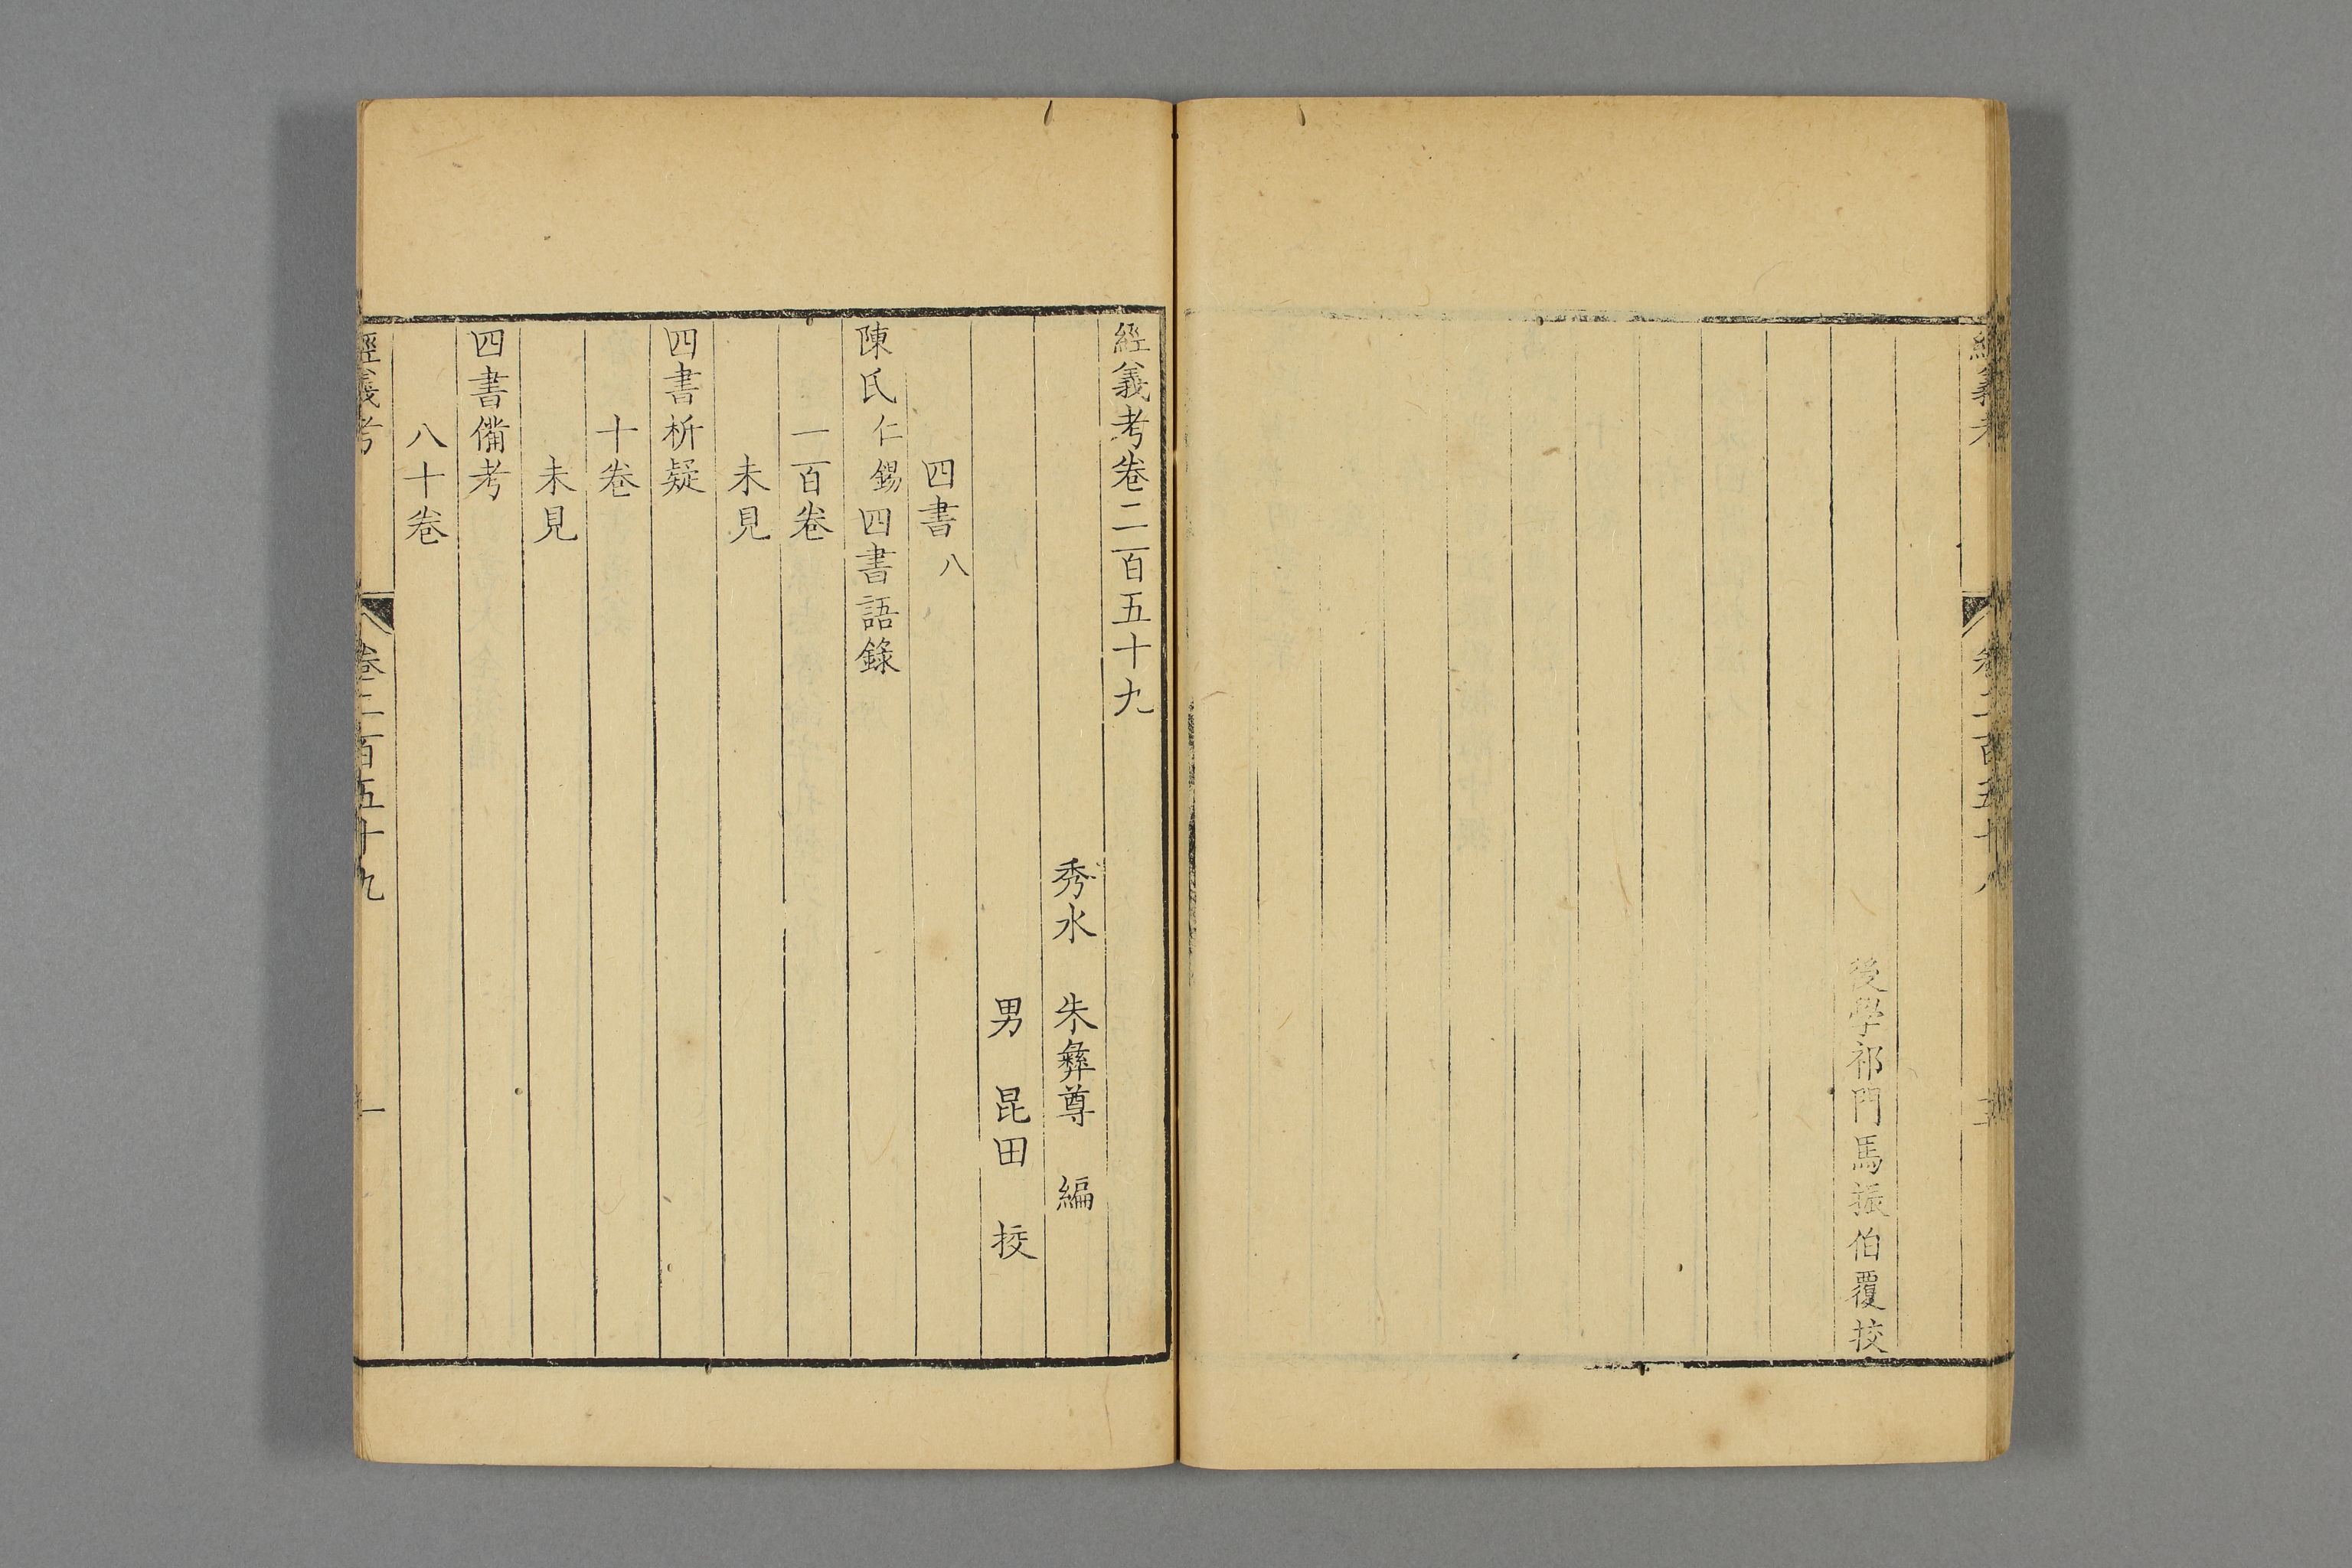 經義考
卷二百五十八
後學祁門馬振伯覆挍
經義考卷二百五十九
秀水 朱彝尊 編
男 昆田 挍
四書八
陳氏仁錫四書語錄
一百卷
未見
四書析疑
十卷
未見
四書備考
八十卷
經義考
卷二百五十九
一